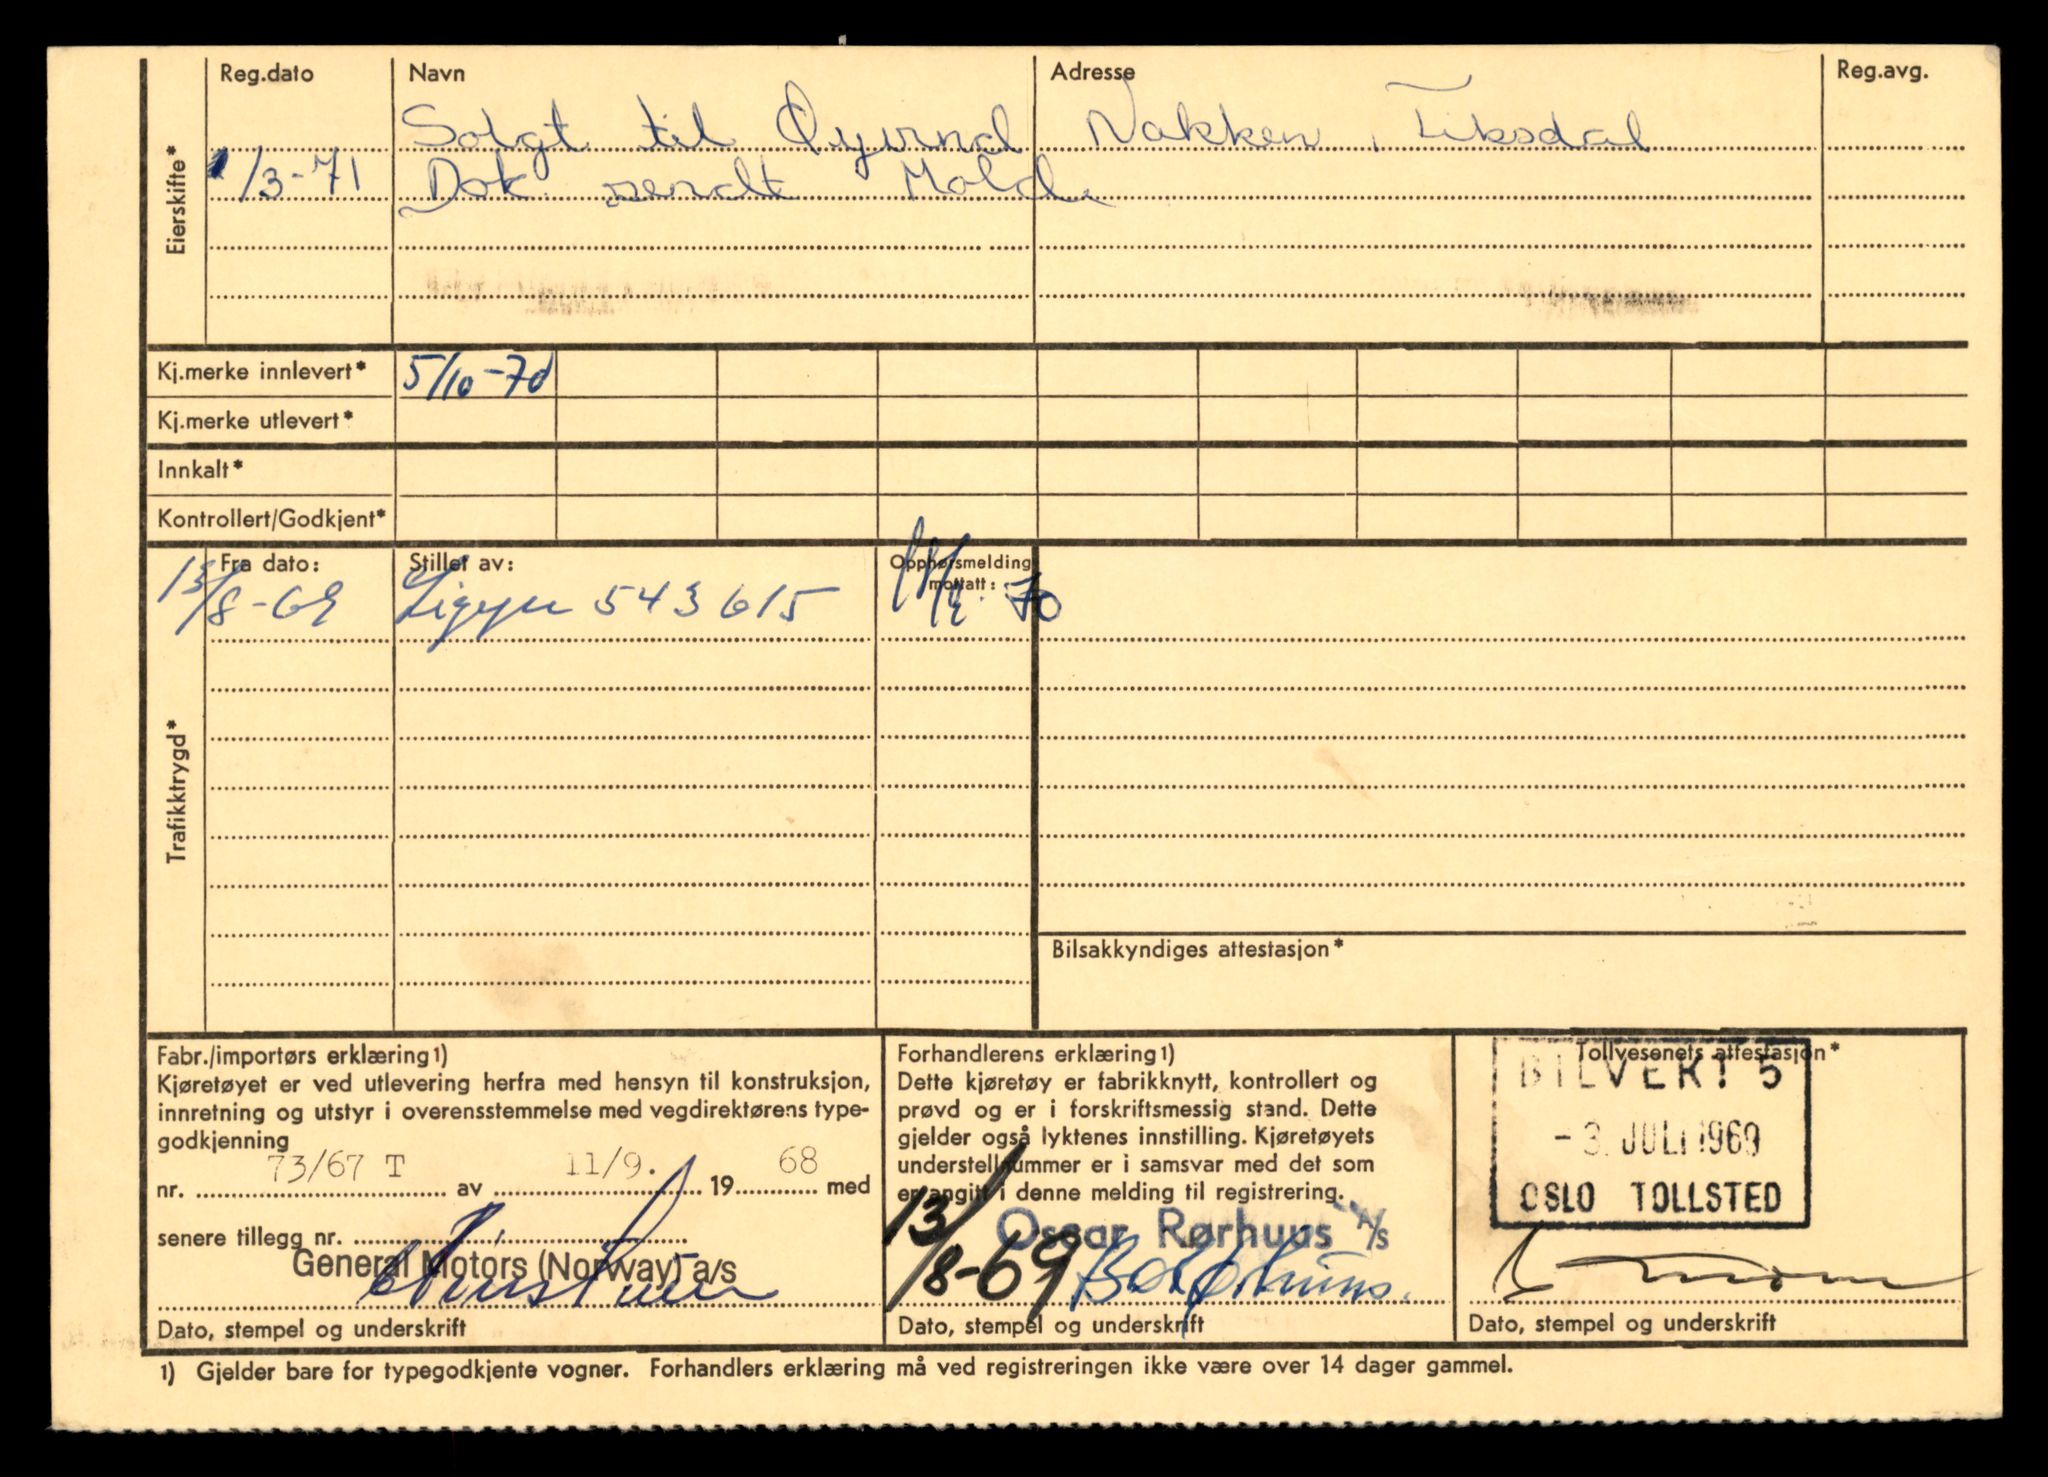 Reg.dato Navn Adresse Reg.avg.
Solgt til Øyvind Nakken, Tiksdal
1/3-71 Dok sendt Molde
Eierskifte*
Kj.merke innlevert* 5/10-70
Kj.merke utlevert*
Innkalt*
Kontrollert/Godkjent*
Fra dato: Stillet av: Opphørsmelding mottatt:
13/8-69 543615 70
Trafikktrygd*
Bilsakkyndiges attestasjon*
Fabr./importørs erklæring1)
Kjøretøyet er ved utlevering herfra med hensyn til konstruksjon,
innretning og utstyr i overensstemmelse med vegdirektørens type-
godkjenning
nr. 73/67 T av 11/9. 19 68 med
senere tillegg nr.
General Motors (Norway) a/s
Dato, stempel og underskrift
Forhandlerens erklæring1)
Dette kjøretøy er fabrikknytt, kontrollert og
prøvd og er i forskriftsmessig stand. Dette
gjelder også lyktenes innstilling. Kjøretøyets
understellnummer er i samsvar med det som
er angitt i denne melding til registrering.
Oscar Rørhuus A/S
13/8-69
Dato, stempel og underskrift
Tollvesenets attestasjon*
BILVEKT 5
-3. JULI 1969
OSLO TOLLSTED
Dato, stempel og underskrift
1) Gjelder bare for typegodkjente vogner. Forhandlers erklæring må ved registreringen ikke være over 14 dager gammel.